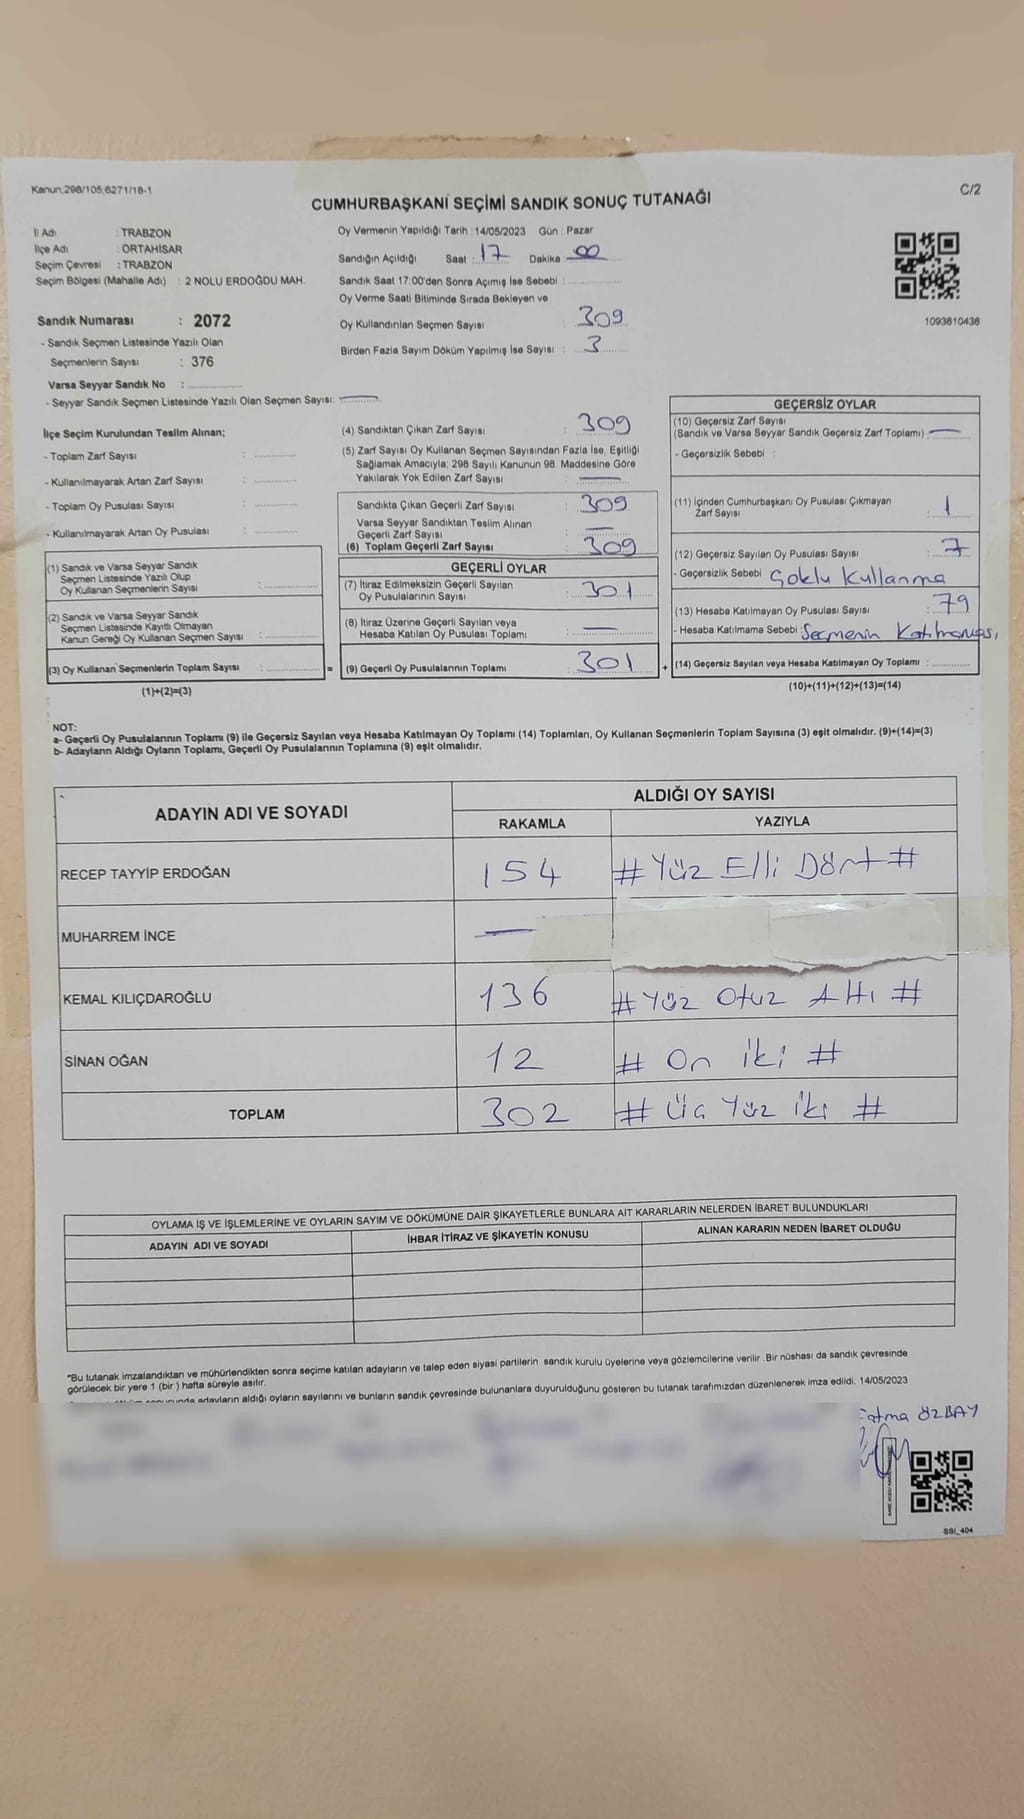 Kanun,298/105,6271/18-1
C/2
CUMHURBAŞKANI SEÇİMİ SANDIK SONUÇ TUTANAĞI
İl Adı : TRABZON
İlçe Adı : ORTAHİSAR
Seçim Çevresi : TRABZON
Seçim Bölgesi (Mahalle Adı) : 2 NOLU ERDOĞDU MAH.
Oy Vermenin Yapıldığı Tarih : 14/05/2023 Gün : Pazar
Sandığın Açıldığı Saat : 17 Dakika : 00
Sandık Saat 17:00'den Sonra Açımış İse Sebebi :
Oy Verme Saati Bitiminde Sırada Bekleyen ve
Oy Kullandırılan Seçmen Sayısı : 309
Birden Fazla Sayım Döküm Yapılmış İse Sayısı : 3
1093610436
Sandık Numarası : 2072
- Sandık Seçmen Listesinde Yazılı Olan
Seçmenlerin Sayısı : 376
Varsa Seyyar Sandık No :
- Seyyar Sandık Seçmen Listesinde Yazılı Olan Seçmen Sayısı: —
İlçe Seçim Kurulundan Teslim Alınan;
- Toplam Zarf Sayısı :
- Kullanılmayarak Artan Zarf Sayısı :
- Toplam Oy Pusulası Sayısı :
- Kullanılmayarak Artan Oy Pusulası :
(1) Sandık ve Varsa Seyyar Sandık
Seçmen Listesinde Yazılı Olup
Oy Kullanan Seçmenlerin Sayısı :
(2) Sandık ve Varsa Seyyar Sandık
Seçmen Listesinde Kayıtlı Olmayan
Kanun Gereği Oy Kullanan Seçmen Sayısı :
(3) Oy Kullanan Seçmenlerin Toplam Sayısı : =
(1)+(2)=(3)
(4) Sandıktan Çıkan Zarf Sayısı : 309
(5) Zarf Sayısı Oy Kullanan Seçmen Sayısından Fazla İse, Eşitliği
Sağlamak Amacıyla; 298 Sayılı Kanunun 98. Maddesine Göre
Yakılarak Yok Edilen Zarf Sayısı : —
Sandıkta Çıkan Geçerli Zarf Sayısı : 309
Varsa Seyyar Sandıktan Teslim Alınan
Geçerli Zarf Sayısı : —
(6) Toplam Geçerli Zarf Sayısı : 309
GEÇERLİ OYLAR
(7) İtiraz Edilmeksizin Geçerli Sayılan
Oy Pusulalarının Sayısı : 301
(8) İtiraz Üzerine Geçerli Sayılan veya
Hesaba Katılan Oy Pusulası Toplamı : —
(9) Geçerli Oy Pusulalarının Toplamı : 301 +
GEÇERSİZ OYLAR
(10) Geçersiz Zarf Sayısı
(Sandık ve Varsa Seyyar Sandık Geçersiz Zarf Toplamı) : —
- Geçersizlik Sebebi :
(11) İçinden Cumhurbaşkanı Oy Pusulası Çıkmayan
Zarf Sayısı : 1
(12) Geçersiz Sayılan Oy Pusulası Sayısı : 7
- Geçersizlik Sebebi : Çoklu Kullanma
(13) Hesaba Katılmayan Oy Pusulası Sayısı : 79
- Hesaba Katılmama Sebebi : Seçmenin Katılmaması
(14) Geçersiz Sayılan veya Hesaba Katılmayan Oy Toplamı :
(10)+(11)+(12)+(13)=(14)
NOT:
a- Geçerli Oy Pusulalarının Toplamı (9) ile Geçersiz Sayılan veya Hesaba Katılmayan Oy Toplamı (14) Toplamları, Oy Kullanan Seçmenlerin Toplam Sayısına (3) eşit olmalıdır. (9)+(14)=(3)
b- Adayların Aldığı Oyların Toplamı, Geçerli Oy Pusulalarının Toplamına (9) eşit olmalıdır.
ADAYIN ADI VE SOYADI
ALDIĞI OY SAYISI
RAKAMLA YAZIYLA
RECEP TAYYİP ERDOĞAN 154 # Yüz Elli Dört #
MUHARREM İNCE —
KEMAL KILIÇDAROĞLU 136 # Yüz Otuz Altı #
SİNAN OĞAN 12 # On iki #
TOPLAM 302 # Üç Yüz iki #
OYLAMA İŞ VE İŞLEMLERİNE VE OYLARIN SAYIM VE DÖKÜMÜNE DAİR ŞİKAYETLERLE BUNLARA AİT KARARLARIN NELERDEN İBARET BULUNDUKLARI
ADAYIN ADI VE SOYADI İHBAR İTİRAZ VE ŞİKAYETİN KONUSU ALINAN KARARIN NEDEN İBARET OLDUĞU
*Bu tutanak imzalandıktan ve mühürlendikten sonra seçime katılan adayların ve talep eden siyasi partilerin sandık kurulu üyelerine veya gözlemcilerine verilir .Bir nüshası da sandık çevresinde
görülecek bir yere 1 (bir ) hafta süreyle asılır.
adayların aldığı oyların sayılarını ve bunların sandık çevresinde bulunanlara duyurulduğunu gösteren bu tutanak tarafımızdan düzenlenerek imza edildi. 14/05/2023
Fatma ÖZBAY
SSI_404